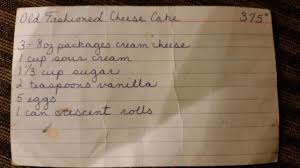 Old Fashioned Cheese Cake 375°
3 - 8oz packages cream cheese
1 cup sour cream
1 1/3 cup sugar
2 teaspoons vanilla
5 eggs
1 can crescent rolls